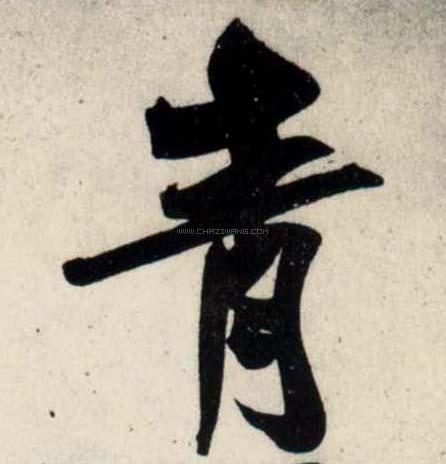 青
WWW.CHAZIWANG.COM